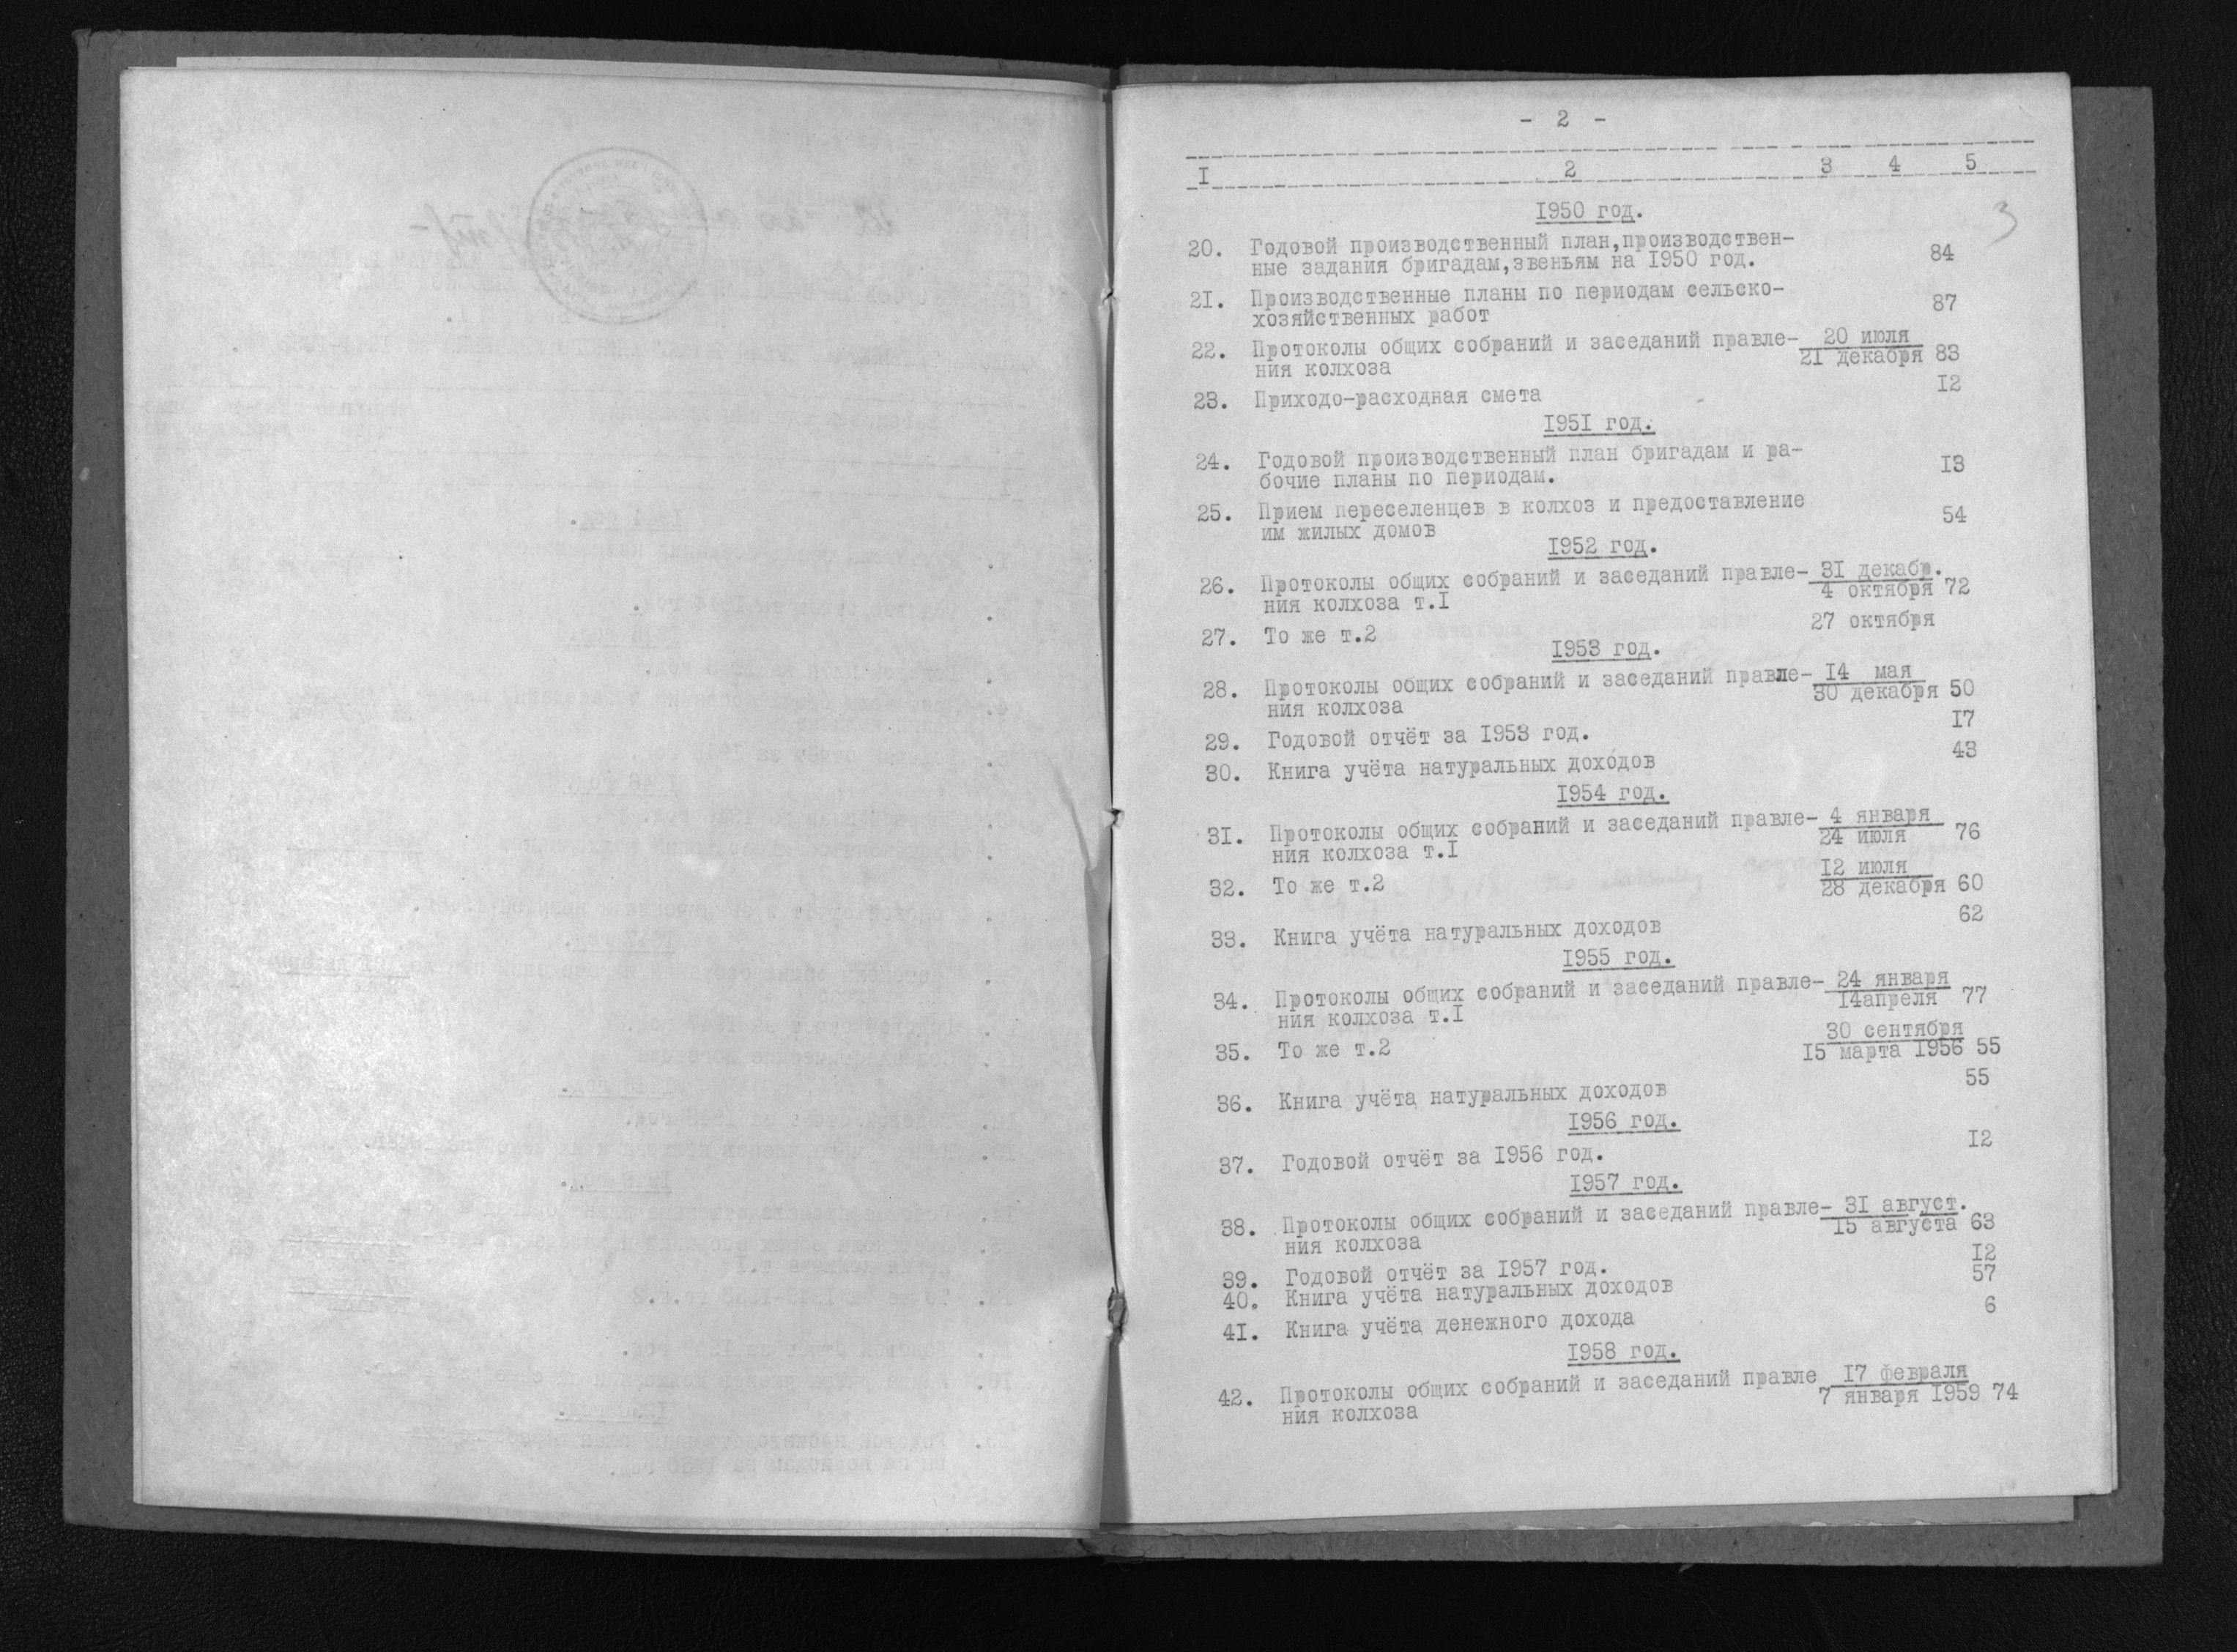 - 2 -
I 2 3 4 5
3
1950 год.
20. Годовой производственный план,производствен-
ные задания бригадам,звеньям на 1950 год. 84
21. Производственные планы по периодам сельско-
хозяйственных работ 87
22. Протоколы общих собраний и заседаний правле- 20 июля
ния колхоза 21 декабря 83
23. Приходо-расходная смета 12
1951 год.
24. Годовой производственный план бригадам и ра-
бочие планы по периодам. 13
25. Прием переселенцев в колхоз и предоставление
им жилых домов 54
1952 год.
26. Протоколы общих собраний и заседаний правле- 31 декабр.
ния колхоза т.I 4 октября 72
27. То же т.2 27 октября
1953 год.
28. Протоколы общих собраний и заседаний правле- 14 мая
ния колхоза 30 декабря 50
29. Годовой отчёт за 1953 год. 17
30. Книга учёта натуральных доходов 43
1954 год.
31. Протоколы общих собраний и заседаний правле- 4 января
ния колхоза т.I 24 июля 76
32. То же т.2 12 июля
28 декабря 60
33. Книга учёта натуральных доходов 62
1955 год.
34. Протоколы общих собраний и заседаний правле- 24 января
ния колхоза т.I 14апреля 77
35. То же т.2 30 сентября
15 марта 1956 55
36. Книга учёта натуральных доходов 55
1956 год.
37. Годовой отчёт за 1956 год. 12
1957 год.
38. Протоколы общих собраний и заседаний правле- 31 август.
ния колхоза 15 августа 63
39. Годовой отчёт за 1957 год. 12
40. Книга учёта натуральных доходов 57
41. Книга учёта денежного дохода 6
1958 год.
42. Протоколы общих собраний и заседаний правле 17 февраля
ния колхоза 7 января 1959 74